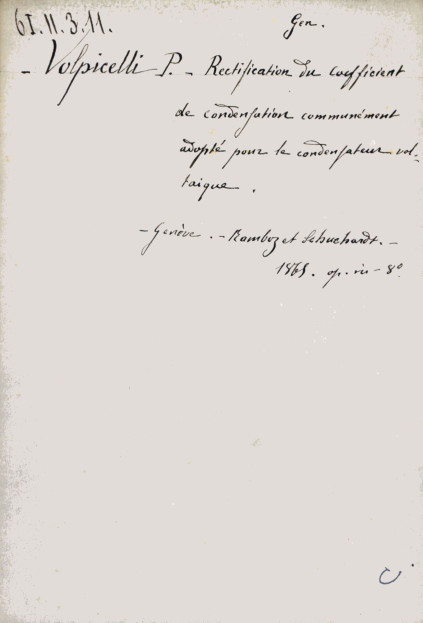 61.11.3.11.
Gen.
- Volpicelli P. - Rectification du coefficient
de condensation communément
adopté pour le condensateur vol-
taique.
- Genève. - Ramboz et Schuchardt. -
op. in - 8°